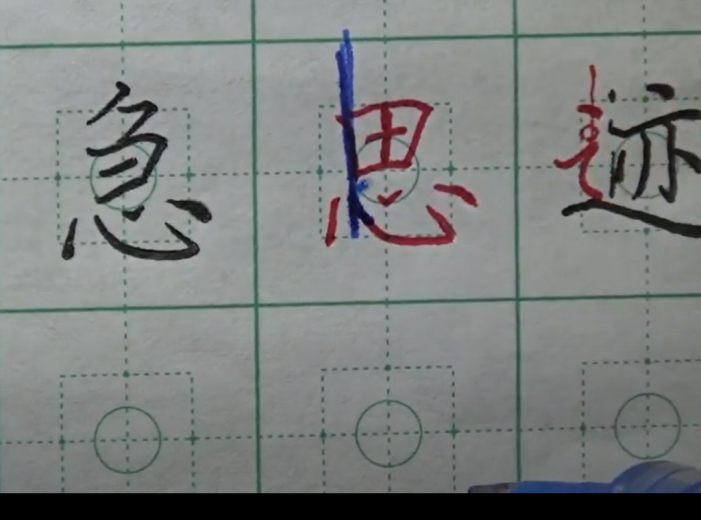 急思迹